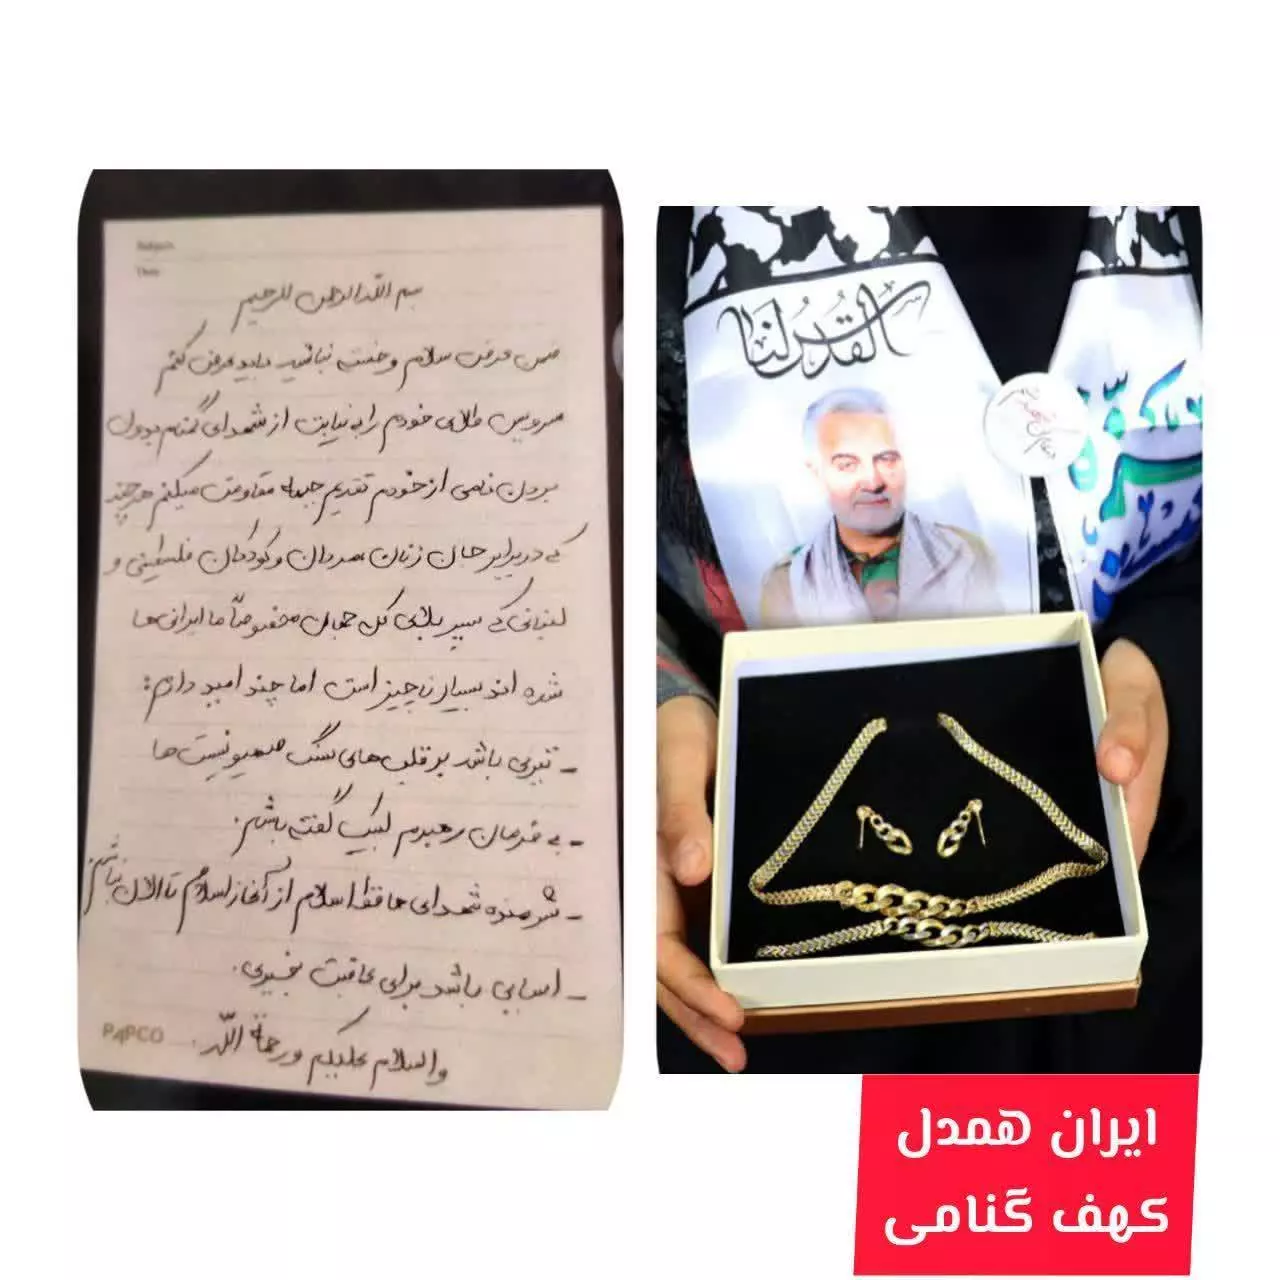 Subject:
Date:
بسم الله الرحمن الرحیم
ضمن عرض سلام و خسته نباشید باید عرض کنم
سرویس طلای خودم را به نیابت از شهدای گمنام بدون
بردن نامی از خودم تقدیم جبهه مقاومت میکنم هر چند
که در برابر جان زنان مردان و کودکان فلسطینی و
لبنانی که سپر بلای کل جهان مخصوصاً ما ایرانی ها
شده اند بسیار ناچیز است اما چند امید دارم:
- تیری باشد بر قلب های سنگ صهیونیست ها
- به فرمان رهبرم لبیک گفته باشم.
- شرمنده شهدای مدافع اسلام از آغاز اسلام تا الان نباشم
- اسبابی باشد برای عاقبت بخیری.
والسلام علیکم و رحمة الله.
PAPCO
القدس لنا
ایران همدل
کهف گنامی